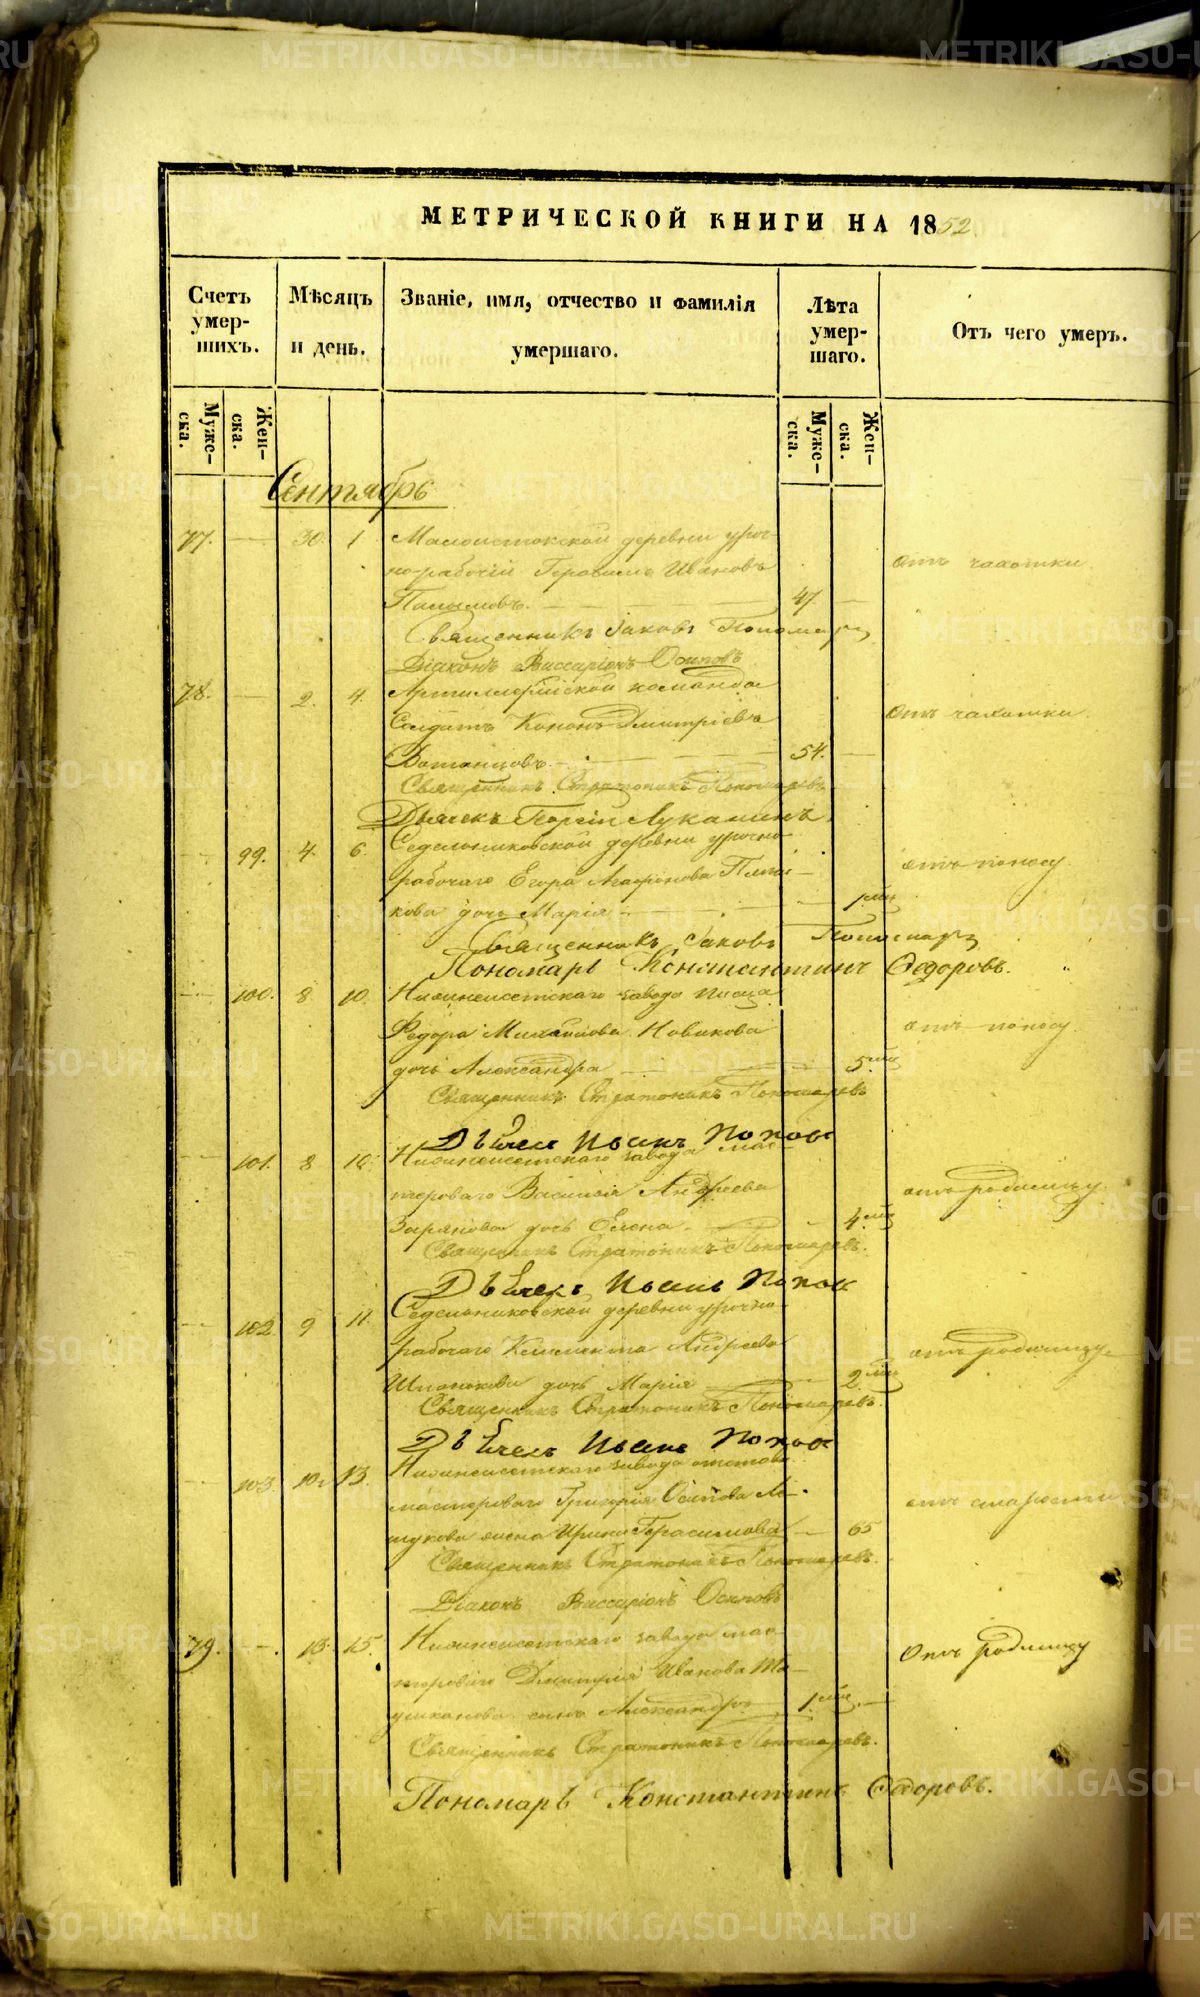 METRIKI.GASO-URAL.RU
МЕТРИЧЕСКОЙ КНИГИ НА 1852
Счетъ умер-шихъ.
Мѣсяцъ и день.
Званіе, имя, отчество и фамилія умершаго.
Лѣта умер-шаго.
Отъ чего умеръ.
Муже-ска.
Жен-ска.
Муже-ска.
Жен-ска.
Сентябрь
77. 30. 1 Малоистокской деревни уроч-
но-рабочій Герасимъ Ивановъ
отъ чахотки
47
Священникъ Іаковъ Пономарев
Діаконъ Виссаріонъ Осиповъ
78. 2. 4. Артиллерійской команды
Солдатъ Кононъ Дмитріевъ
отъ чахотки
54.
Священникъ Стратоникъ Пономаревъ
Дьячекъ Георгій Луканинъ
99. 4. 6. Седельниковской деревни урочно-
рабочаго Егора Агафонова
отъ поносу
кова дочь Марія 1 мѣс
Священникъ Іаковъ Пономарев
Пономарь Константинъ Ѳедоровъ.
100. 8 10. Нижнеисетскаго завода писца
Федора Михайлова Новикова
отъ поносу
дочь Александра 5 мѣс
Священникъ Стратоникъ Пономаревъ
Дьячекъ Иоанъ Попов
101. 8 10. Нижнеисетскаго завода мас-
тероваго Василія Андреева
отъ родимцу
Зырянова дочь Елена 4 мѣс
Священникъ Стратоникъ Пономаревъ.
Дьячекъ Иоанъ Попов
102 9 11. Седельниковской деревни урочно-
рабочаго Климента Андреева
отъ родимцу
дочь Марія 2 мѣс
Священникъ Стратоникъ Пономаревъ.
Дьячекъ Иоанъ Попов
103. 10. 13. Нижнеисетскаго завода отставн
мастероваго Григорія Осипова
отъ старости
жена Ирина Герасимова 65
Священникъ Стратоникъ Пономаревъ.
Діаконъ Виссаріонъ Осиповъ
79. 13. 15. Нижнеисетскаго завода мас-
тероваго Дмитрія Иванова
Отъ родимцу
сынъ Александръ 1. мѣс.
Священникъ Стратоникъ Пономаревъ.
Пономарь Константинъ Ѳедоровъ.